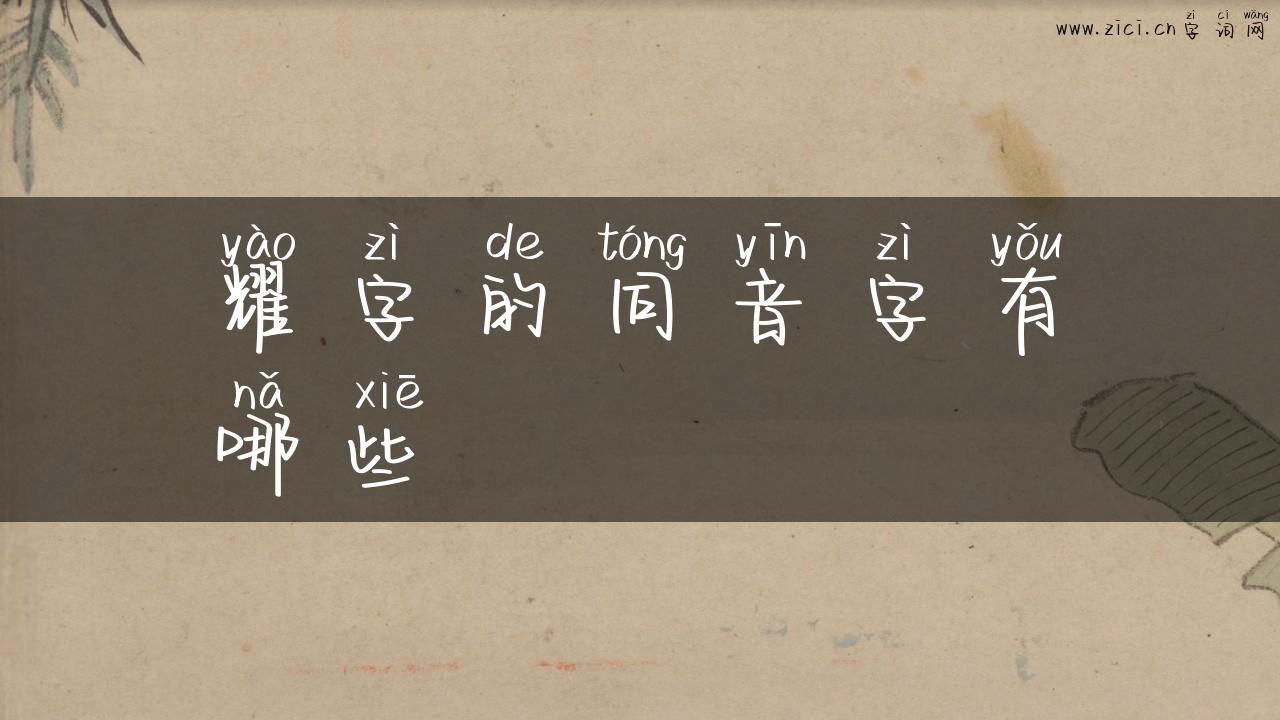 zì cí wǎng
www.zici.cn 字 词 网
yào zì de tóng yīn zì yǒu
耀 字 的 同 音 字 有
nǎ xiē
哪 些